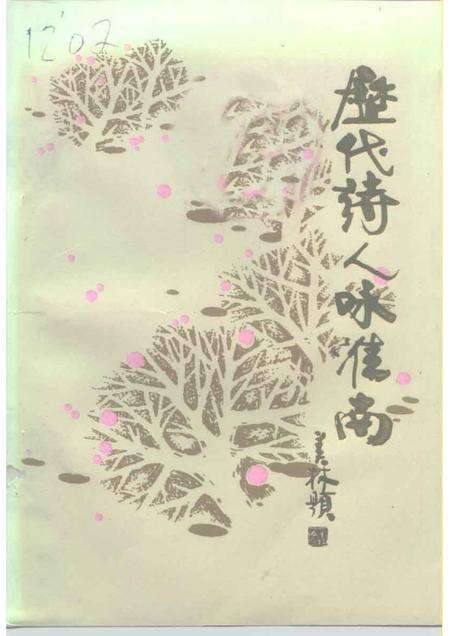 12'07
歷代詩人咏淮南
美林題